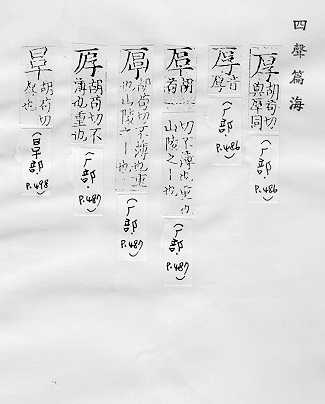 四聲篇海
胡苟切與厚同(厂部.P.486)
音厚(厂部.P.486)
胡苟切不薄也重也山陵之丨也(厂部.P.487)
胡苟切不薄也重也山陵之丨也(厂部.P.487)
厚胡苟切不薄也重也(厂部.P.487)
胡苟切厚也(部.P.498)